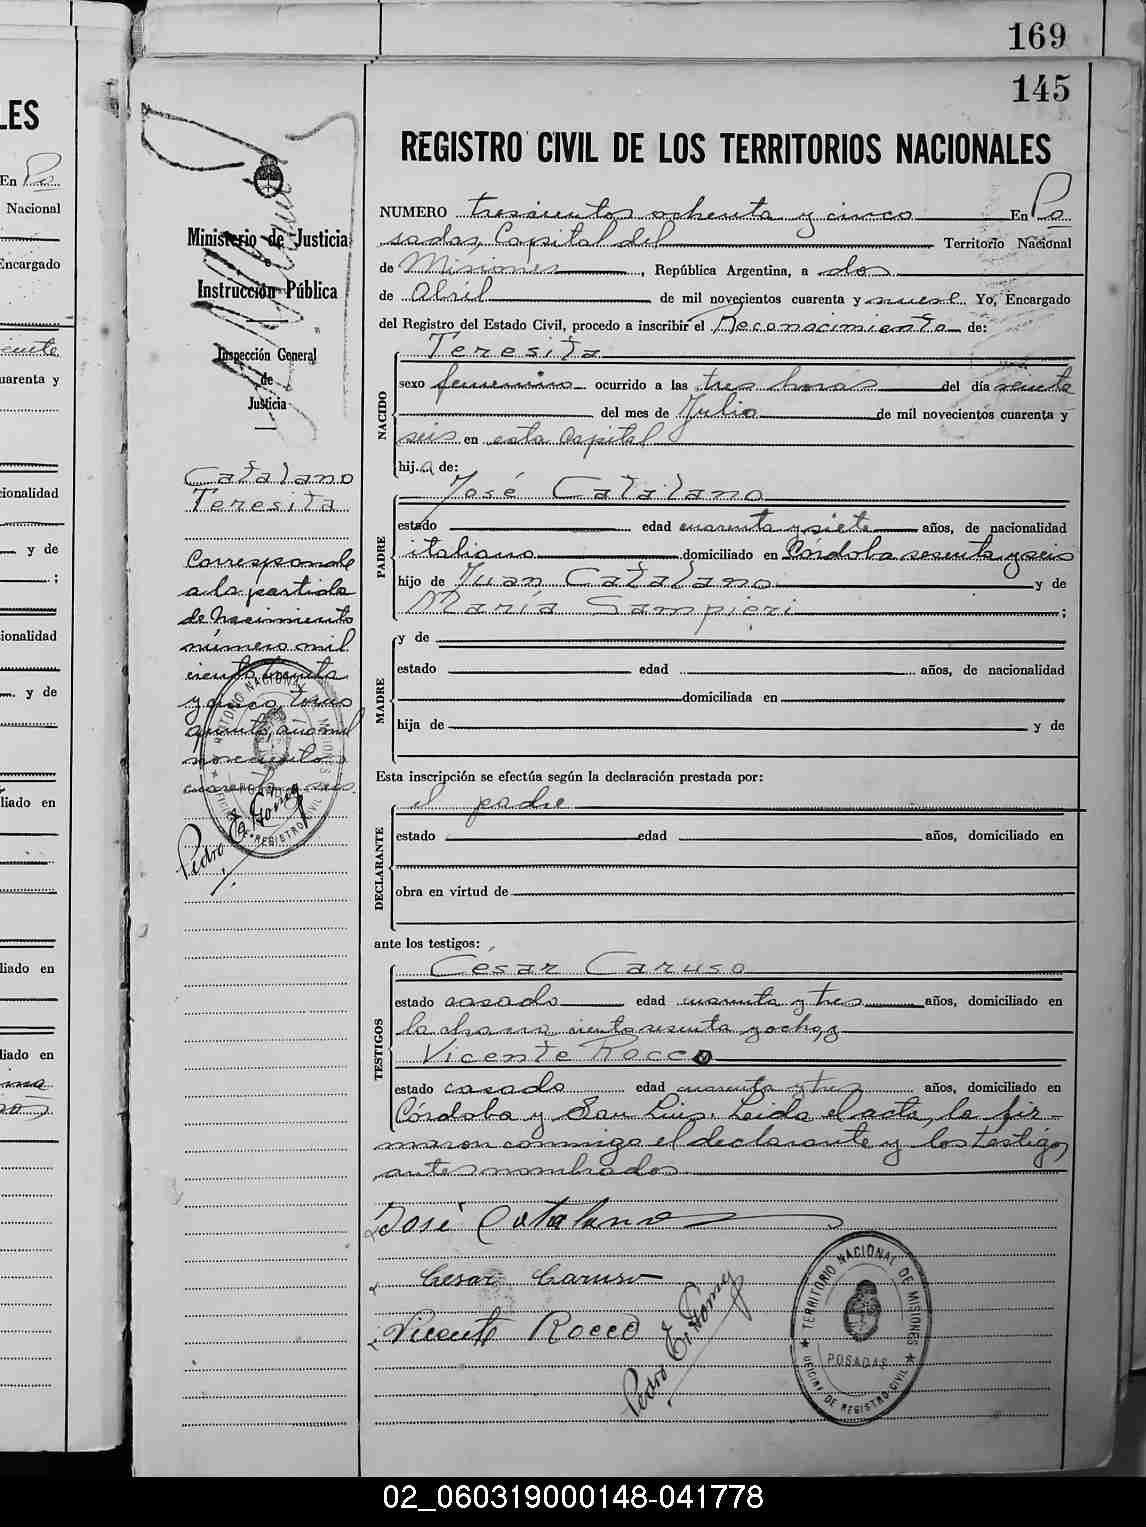 169
145
LES
REGISTRO CIVIL DE LOS TERRITORIOS NACIONALES
NUMERO trescientos ochenta y cinco En Po
sadas, Capital del Territorio Nacional
de Misiones, República Argentina, a dos
de Abril de mil novecientos cuarenta y nueve. Yo, Encargado
del Registro del Estado Civil, procedo a inscribir el Reconocimiento de:
NACIDO
Teresita
sexo femenino ocurrido a las tres horas del día veinte
del mes de Julio de mil novecientos cuarenta y
seis en esta Capital
hija de:
PADRE
José Catalano
estado edad cuarenta y siete años, de nacionalidad
italiano domiciliado en Córdoba sesenta y seis
hijo de Juan Catalano y de
María Sampieri ;
MADRE
y de
estado edad años, de nacionalidad
domiciliada en
hija de y de
Esta inscripción se efectúa según la declaración prestada por:
DECLARANTE
el padre
estado edad años, domiciliado en
obra en virtud de
ante los testigos:
TESTIGOS
César Caruso
estado casado edad cuarenta y tres años, domiciliado en
la chacra ciento sesenta y ocho, y
Vicente Rocco
estado casado edad cuarenta y tres años, domiciliado en
Córdoba y San Luis. Leída el acta, la fir-
maron conmigo el declarante y los testigos
antes nombrados
José Catalano
Cesar Caruso
Vicente Rocco
Pedro E. Gomez
TERRITORIO NACIONAL DE MISIONES
POSADAS
OFICINA DE REGISTRO CIVIL
Ministerio de Justicia
e
Instrucción Pública
Inspección General
de
Justicia
Catalano
Teresita
Corresponde
a la partida
de Nacimiento
número mil
ciento treinta
y cinco, tomo
quinto, año mil
novecientos
cuarenta y seis.
Pedro E. Gomez
TERRITORIO NACIONAL DE MISIONES
POSADAS
OFICINA DE REGISTRO CIVIL
En Po
Nacional
Encargado
veinte
uarenta y
cionalidad
y de
;
ionalidad
y de
liado en
liado en
liado en
02_060319000148-041778